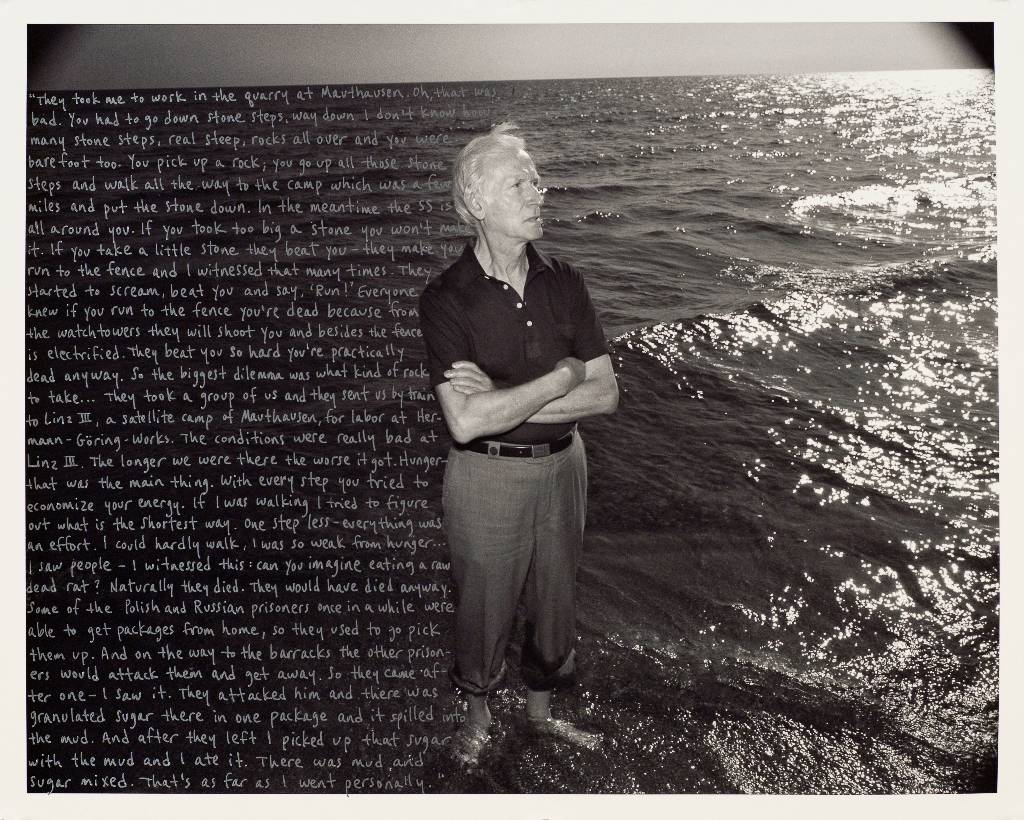 "They took me to work in the quarry at Mauthausen. Oh, that was
bad. You had to go down stone steps, way down I don't know how
many stone steps, real steep, rocks all over and you were
barefoot too. You pick up a rock, you go up all those stone
steps and walk all the way to the camp which was a few
miles and put the stone down. In the meantime the SS is
all around you. If you took too big a stone you won't make
it. If you take a little stone they beat you – they make you
run to the fence and I witnessed that many times. They
started to scream, beat you and say, 'Run!' Everyone
knew if you run to the fence you're dead because from
the watchtowers they will shoot you and besides the fence
is electrified. They beat you so hard you're practically
dead anyway. So the biggest dilemma was what kind of rock
to take... They took a group of us and they sent us by train
to Linz III, a satellite camp of Mauthausen, for labor at Her-
mann-Göring-Works. The conditions were really bad at
Linz III. The longer we were there the worse it got. Hunger–
that was the main thing. With every step you tried to
economize your energy. If I was walking I tried to figure
out what is the shortest way. One step less – everything was
an effort. I could hardly walk, I was so weak from hunger...
I saw people – I witnessed this: can you imagine eating a raw
dead rat? Naturally they died. They would have died anyway.
Some of the Polish and Russian prisoners once in a while were
able to get packages from home, so they used to go pick
them up. And on the way to the barracks the other prison-
ers would attack them and get away. So they came af-
ter one – I saw it. They attacked him and there was
granulated sugar there in one package and it spilled into
the mud. And after they left I picked up that sugar
with the mud and I ate it. There was mud and
sugar mixed. That's as far as I went personally."